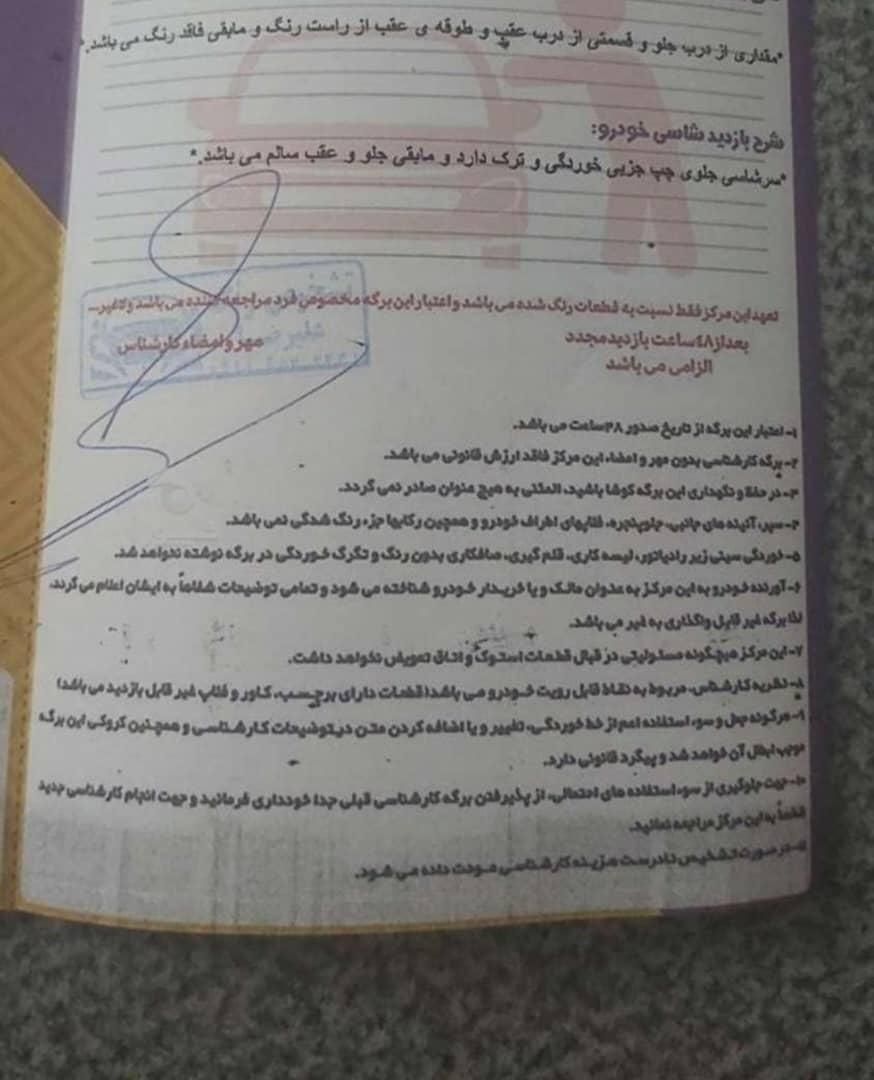 *مقداری از درب جلو و قسمتی از درب عقب و طوقه ی عقب از راست رنگ و مابقی فاقد رنگ می باشد.*
شرح بازدید شاسی خودرو:
*سرشاسی جلوی چپ جزیی خوردگی و ترک دارد و مابقی جلو و عقب سالم می باشد.*
تعهد این مرکز فقط نسبت به قطعات رنگ شده می باشد و اعتبار این برگه مخصوص فرد مراجعه کننده می باشد ولاغیر...
بعداز ۴۸ساعت بازدید مجدد
الزامی می باشد
مهر و امضاء کارشناس
۱- اعتبار این برگه از تاریخ صدور ۴۸ساعت می باشد.
۲- برگه کارشناسی بدون مهر و امضاء این مرکز فاقد ارزش قانونی می باشد.
۳- در حفظ و نگهداری این برگه کوشا باشید، المثنی به هیچ عنوان صادر نمی گردد.
۴- سپر، آئینه های جانبی، جلوپنجره، فلاپهای اطراف خودرو و همچین رکابها جزء رنگ شدگی نمی باشد.
۵- خوردگی سینی زیر رادیاتور، لیسه کاری، قلم گیری، صافکاری بدون رنگ و تگرگ خوردگی در برگه نوشته نخواهد شد.
۶- آورنده خودرو به این مرکز به عنوان مالک و یا خریدار خودرو شناخته می شود و تمامی توضیحات شفاهاً به ایشان اعلام می گردد،
لذا برگه غیر قابل واگذاری به غیر می باشد.
۷- این مرکز هیچگونه مسئولیتی در قبال قطعات استوک و اتاق تعویض نخواهد داشت.
۸- نظریه کارشناس، مربوط به نقاط قابل رویت خودرو می باشد(قطعات دارای برچسب، کاور و فلاپ غیر قابل بازدید می باشد)
۹- هرگونه جعل و سوء استفاده اعم از خط خوردگی، تغییر و یا اضافه کردن متن در توضیحات کارشناسی و همچنین کروکی این برگه
موجب ابطال آن خواهد شد و پیگرد قانونی دارد.
۱۰- جهت جلوگیری از سوء استفاده های احتمالی، از پذیرفتن برگه کارشناسی قبلی جدا خودداری فرمائید و جهت انجام کارشناسی جدید
قطعاً به این مرکز مراجعه نمائید.
۱۱- در صورت تشخیص نادرست هزینه کارشناسی عودت داده می شود.